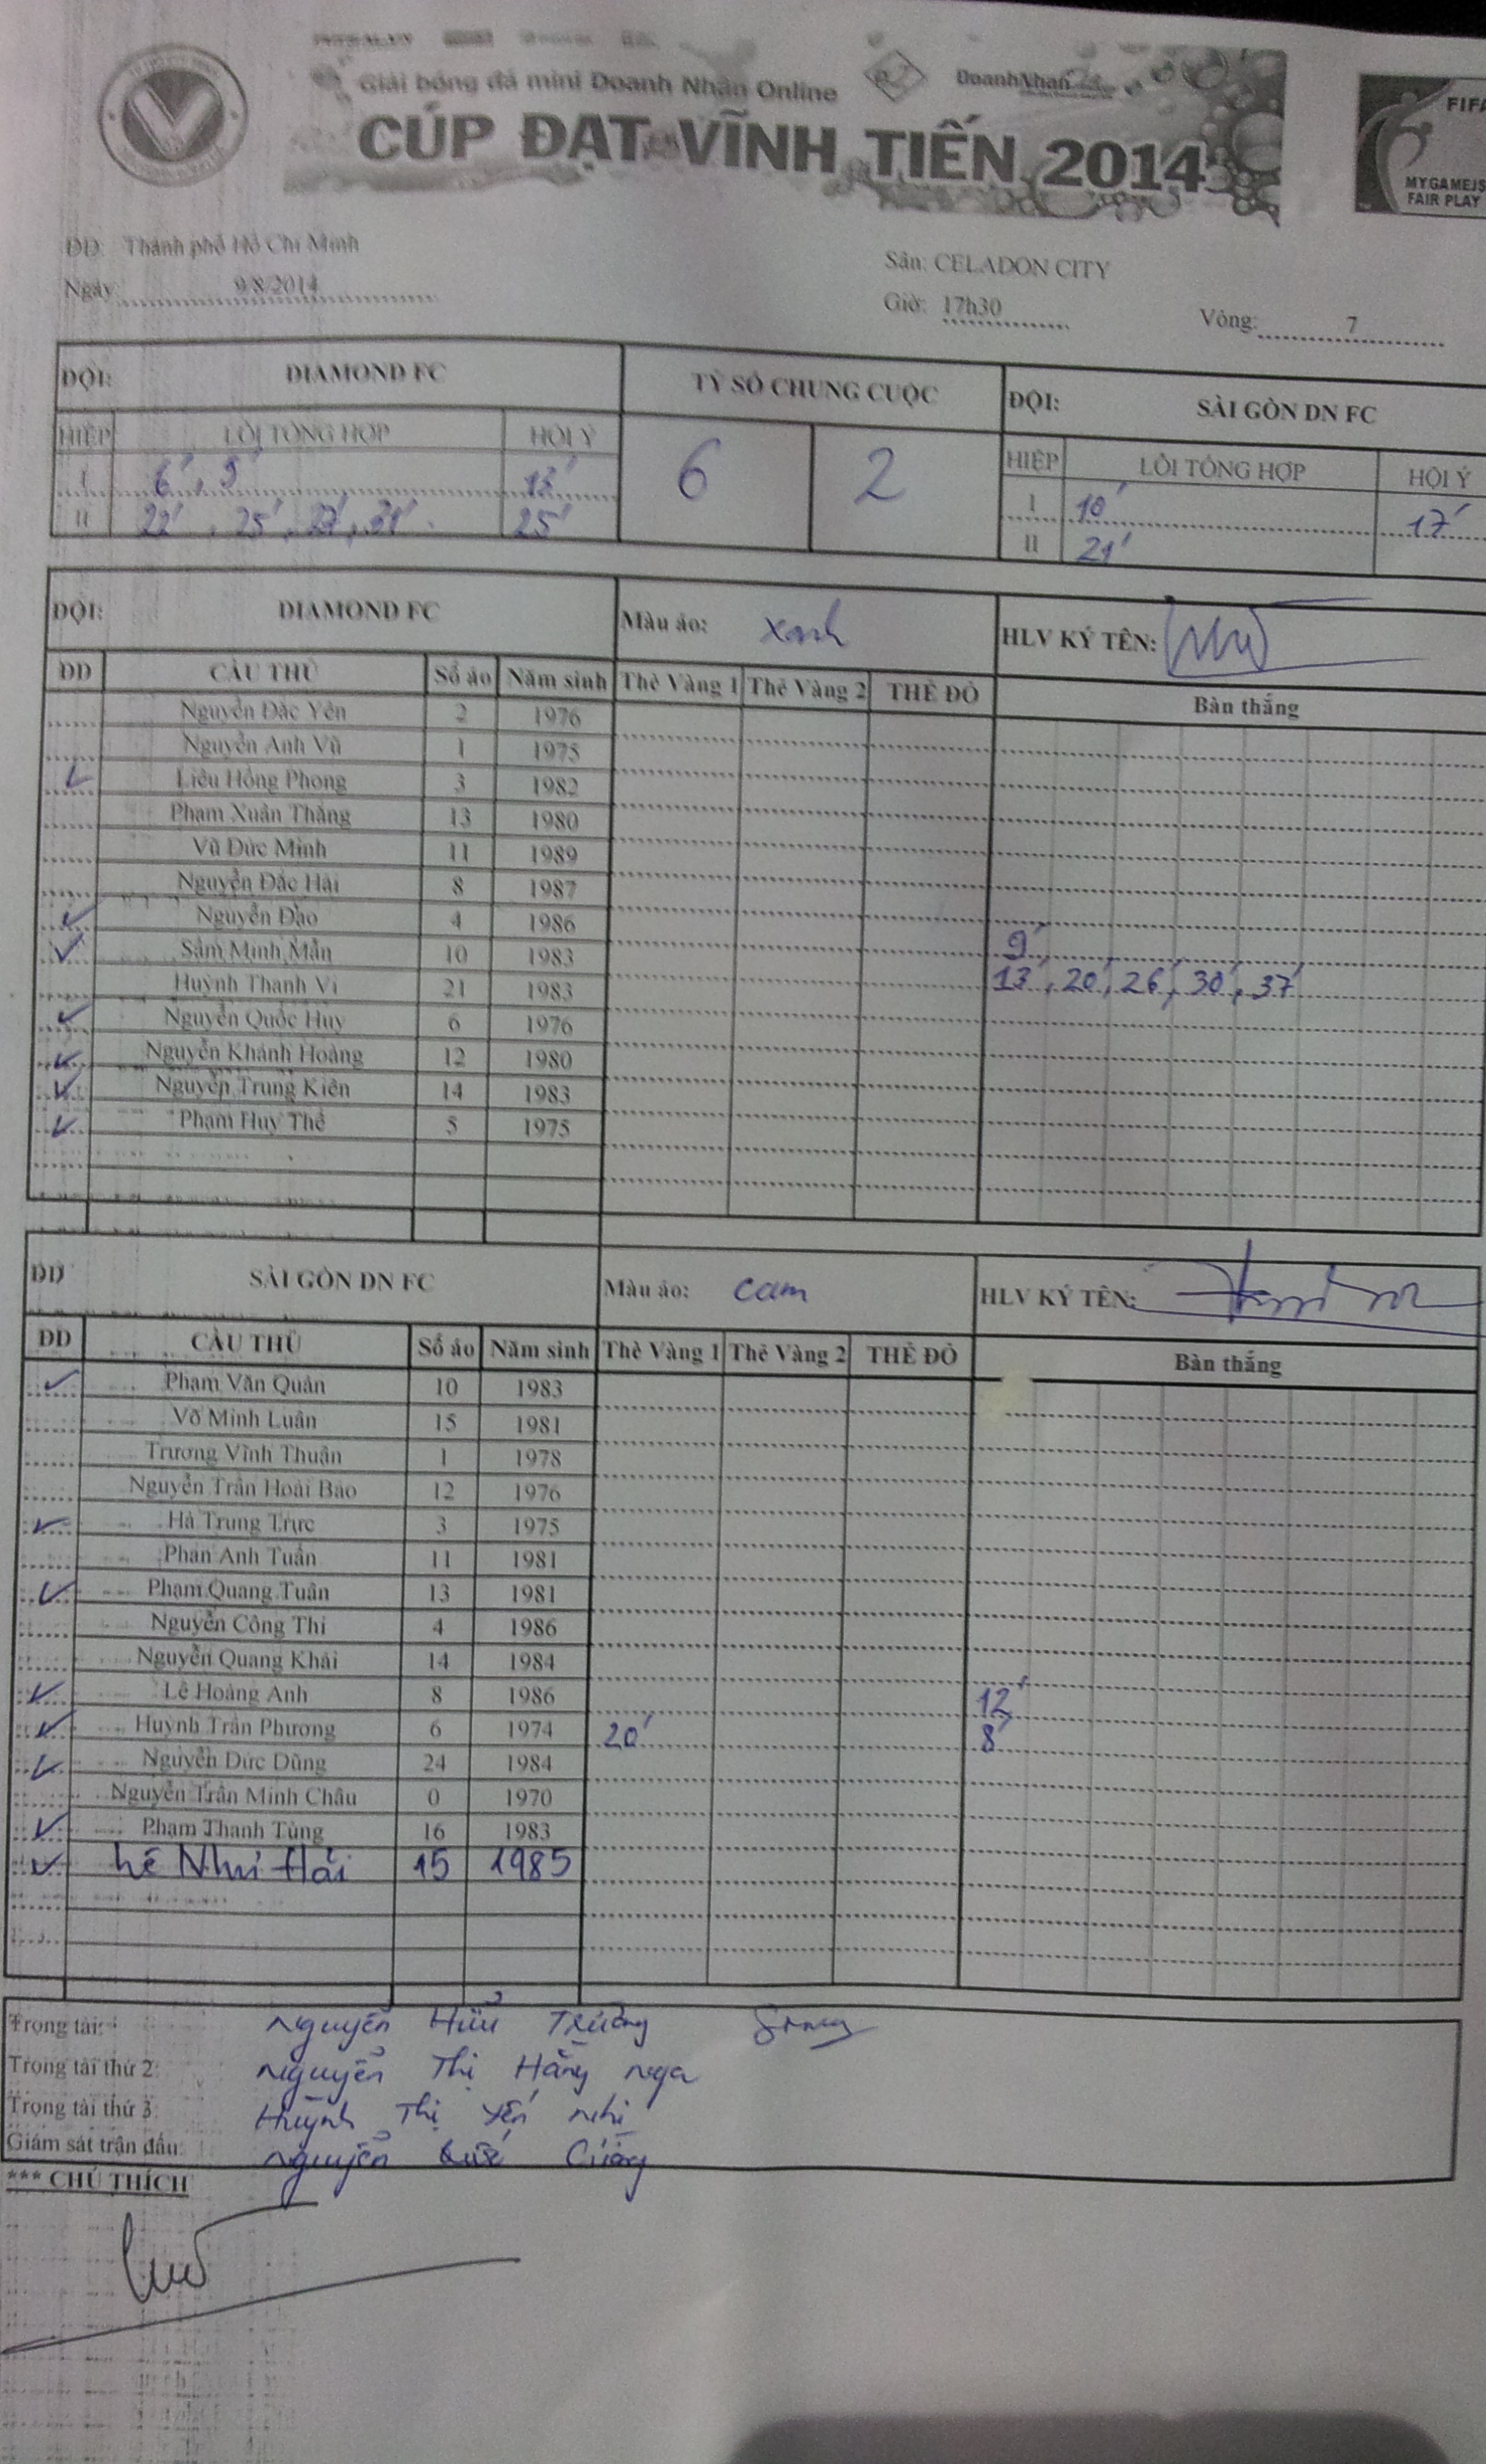 Giải bóng đá mini Doanh Nhân Online
DoanhNhan
CÚP ĐẠT VĨNH TIẾN 2014
FIFA
MYGAMEJS
FAIR PLAY
ĐĐ: Thành phố Hồ Chí Minh
Sân: CELADON CITY
Ngày: 9/8/2014
Giờ: 17h30
Vòng: 7
ĐỘI: DIAMOND FC TỶ SỐ CHUNG CUỘC ĐỘI: SÀI GÒN DN FC
HIỆP LỖI TỔNG HỢP HỘI Ý 6 2 HIỆP LỖI TỔNG HỢP HỘI Ý
I 6', 9' 13' I 10' 17'
II 22', 25', 27', 31' 25' II 21'
ĐỘI: DIAMOND FC Màu áo: xanh HLV KÝ TÊN:
DD CẦU THỦ Số áo Năm sinh Thẻ Vàng 1 Thẻ Vàng 2 THẺ ĐỎ Bàn thắng
Nguyễn Đắc Yên 2 1976
Nguyễn Anh Vũ 1 1975
✓ Liêu Hồng Phong 3 1982
Phạm Xuân Thắng 13 1980
Vũ Đức Minh 11 1989
Nguyễn Đắc Hải 8 1987
✓ Nguyễn Đạo 4 1986
✓ Sầm Minh Mẫn 10 1983 9'
Huỳnh Thanh Vi 21 1983 13', 20', 26', 30', 37'
✓ Nguyễn Quốc Huy 6 1976
✓ Nguyễn Khánh Hoàng 12 1980
✓ Nguyễn Trung Kiên 14 1983
✓ Phạm Huy Thể 5 1975
DD SÀI GÒN DN FC Màu áo: cam HLV KÝ TÊN:
DD CẦU THỦ Số áo Năm sinh Thẻ Vàng 1 Thẻ Vàng 2 THẺ ĐỎ Bàn thắng
✓ Phạm Văn Quân 10 1983
Võ Minh Luân 15 1981
Trương Vĩnh Thuận 1 1978
Nguyễn Trần Hoài Bảo 12 1976
✓ Hà Trung Trực 3 1975
Phan Anh Tuấn 11 1981
✓ Phạm Quang Tuân 13 1981
Nguyễn Công Thi 4 1986
Nguyễn Quang Khải 14 1984
✓ Lê Hoàng Anh 8 1986 12'
✓ Huỳnh Trần Phương 6 1974 20' 8'
✓ Nguyễn Đức Dũng 24 1984
Nguyễn Trần Minh Châu 0 1970
✓ Phạm Thanh Tùng 16 1983
✓ Lê Như Hải 15 1985
Trọng tài: Nguyễn Hữu Trường
Trọng tài thứ 2: Nguyễn Thị Hằng Nga
Trọng tài thứ 3: Huỳnh Thị Yến Nhi
Giám sát trận đấu: Nguyễn Quốc Cường
*** CHÚ THÍCH